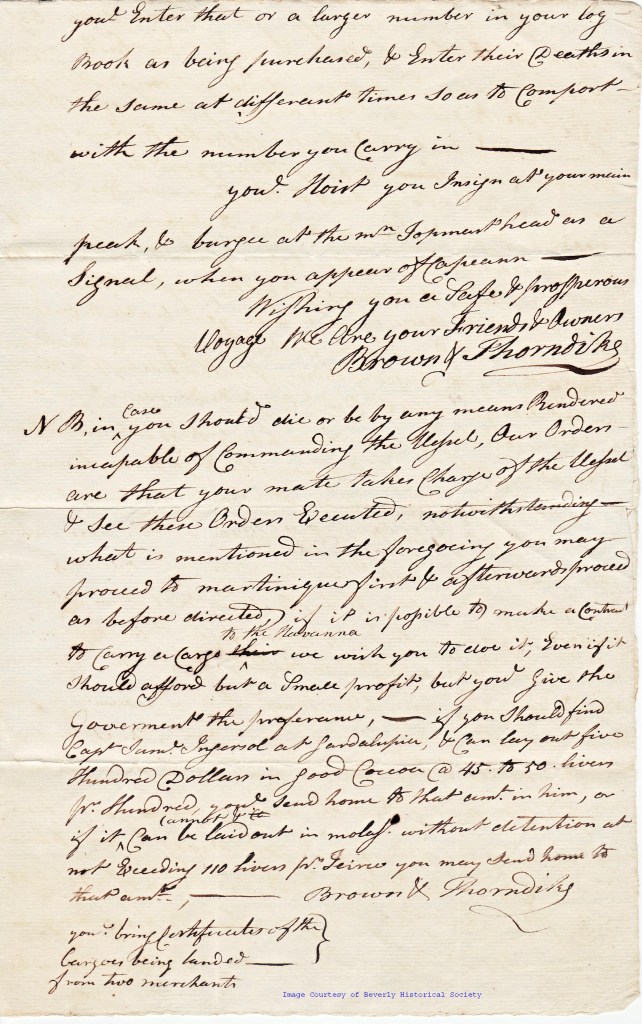 you'l Enter that or a larger number in your log
Book as being purchased, & Enter their Deaths in
the same at differant times so as to Comport
with the number you Carry in —
you'l Hoist you Insign at your main
peak, & burgee at the mn Topmast head as a
Signal, when you appear of Capeann —
Wishing you a Safe & prosperous
Voyage We Are your Friends & Owners
Brown & Thorndike
N B, in Case you should die or be by any means Rendered
incapable of Commanding the Vessel, Our Orders
are that your mate takes Charge of the Vessel
& See these Orders Executed, notwithstanding —
what is mentioned in the foregoeing you may
proceed to martinique first & afterwards proceed
as before directed, if it is possible to make a Contract
to Carry a Cargo to the Havanna we wish you to doe it, Even if it
should afford but a Small profit, but you'l Give the
Goverment the preferance, — if you should find
Capt Saml Ingersol at Gardalupia, & Can lay out five
Hundred Dollars in Good Cocoa @ 45. to 50. livers
pr. Hundred, you'l send home to that amt. in him, or
if it cannot Can be laid out in molas. without detention at
not Exceeding 110 livers pr. Teirce you may send home to
that amt., — Brown & Thorndike
you'l bring Certificates of the
Cargoes being landed —
from two merchants
Image Courtesy of Beverly Historical Society